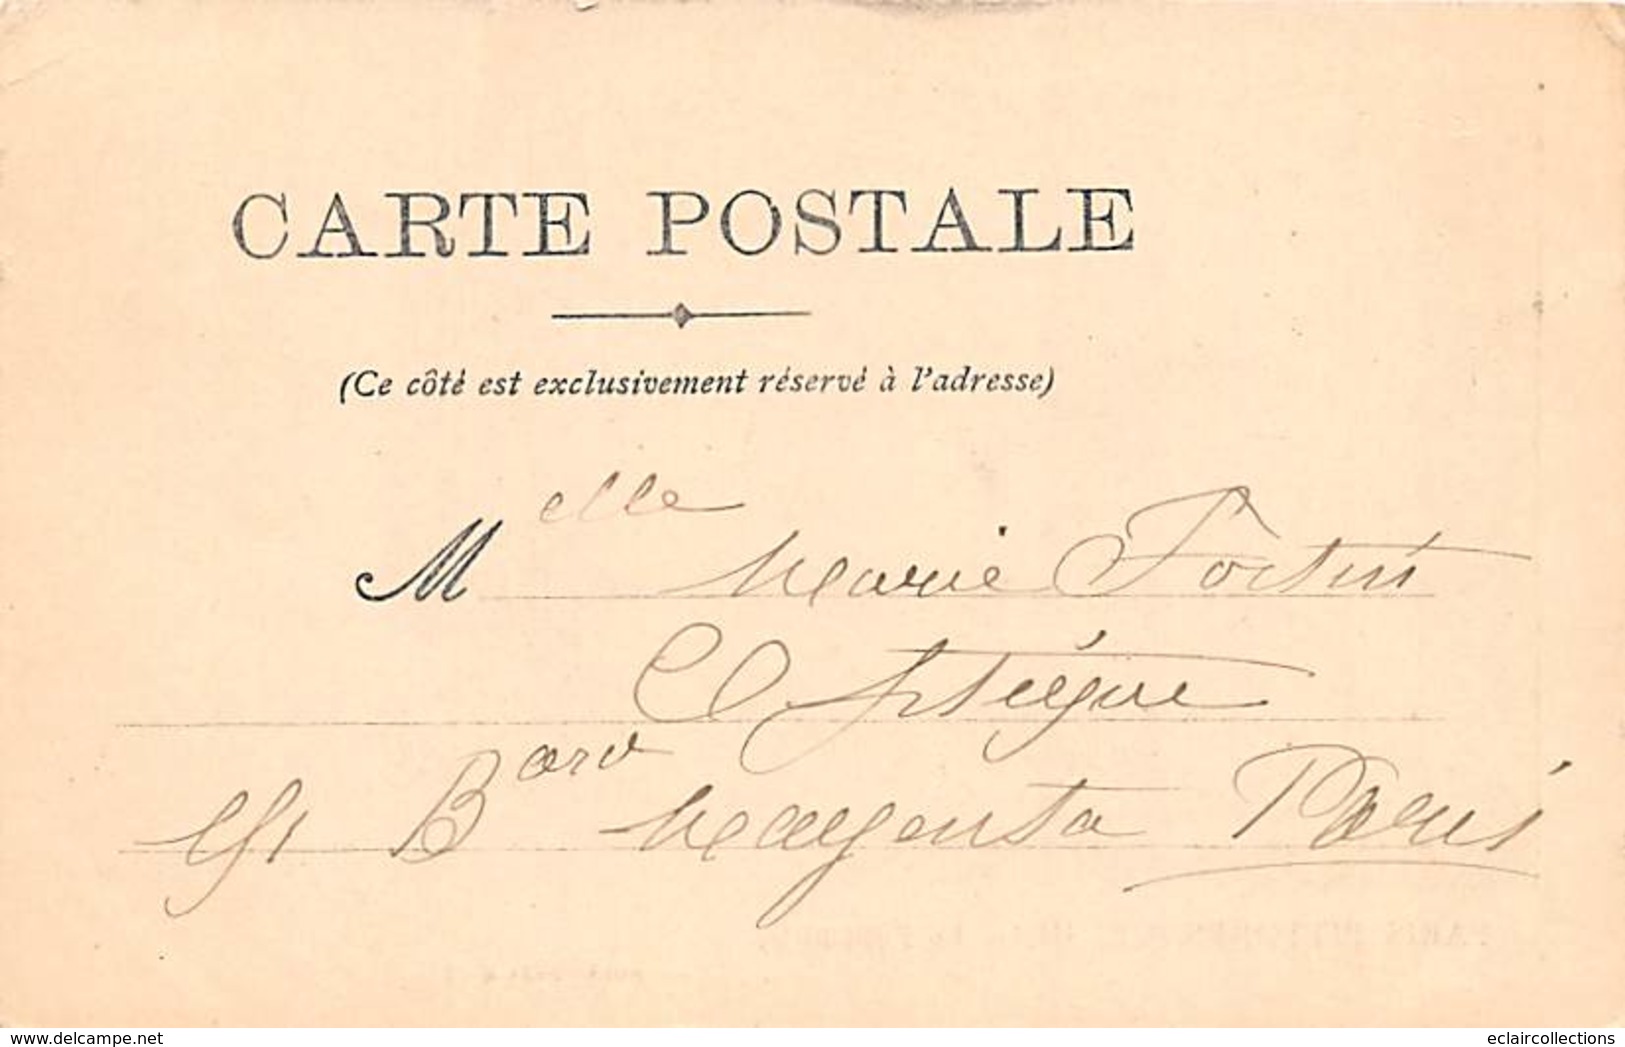 CARTE POSTALE
(Ce côté est exclusivement réservé à l'adresse)
Melle Marie Fortin
Bard Magenta Paris
www.delcampe.net
eclaircollections